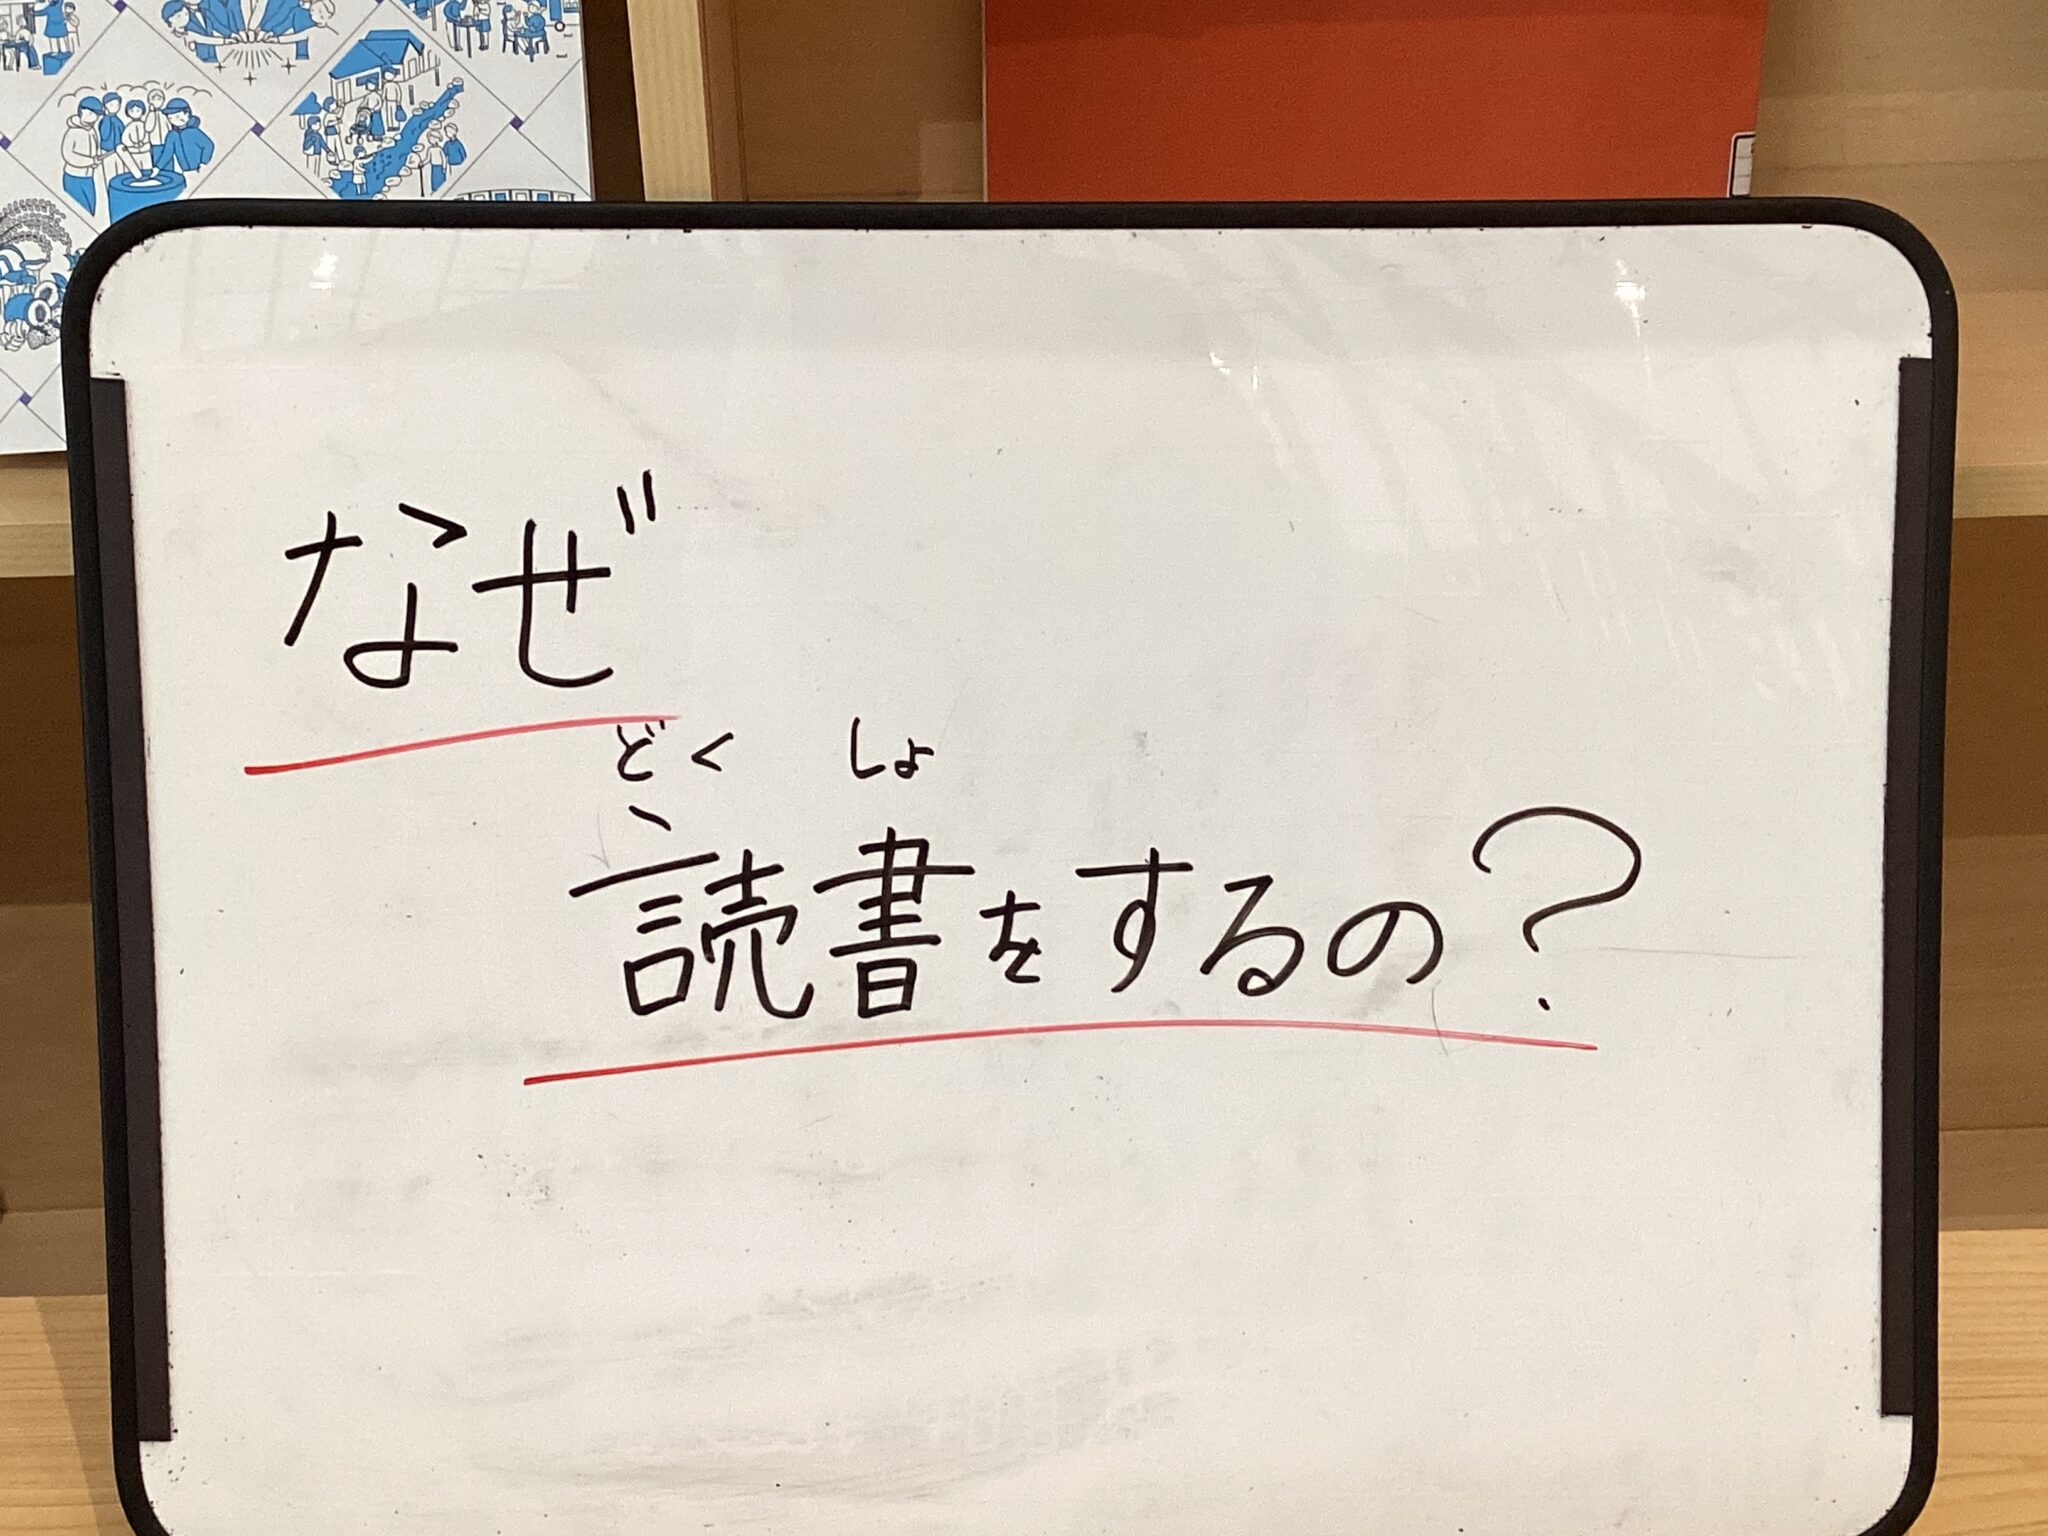 なぜ
どくしょ
読書をするの?